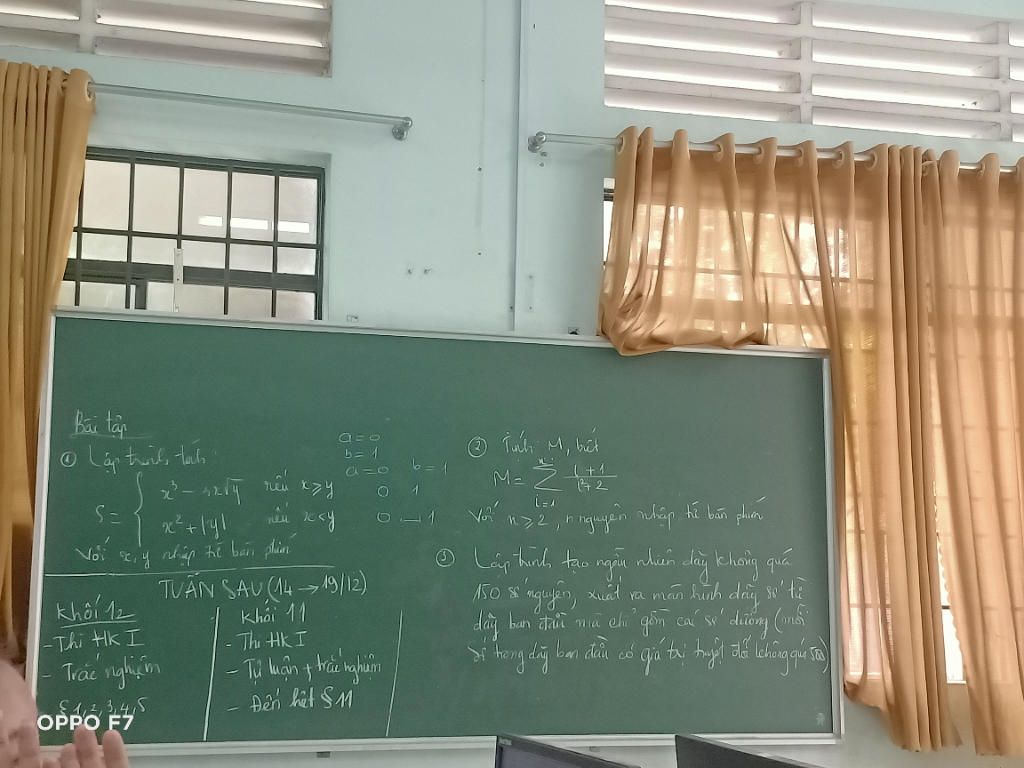 Bài tập
① Lập trình tính:
S = { x³ - 4x√y nếu x ≥ y
x² + |y| nếu x < y
Với x, y nhập từ bàn phím
a = 0
b = 1
a = 0 b = 1
0 1
0 — 1
② Tính M, biết
M = Σ (i + 1)/(i² + 2)
i = 1
Với n ≥ 2, n nguyên nhập từ bàn phím
③ Lập trình tạo ngẫu nhiên dãy không quá
150 số nguyên, xuất ra màn hình dãy số từ
dãy ban đầu mà chỉ gồm các số dương (mỗi
số trong dãy ban đầu có giá trị tuyệt đối không quá
TUẦN SAU (14 → 19/12)
Khối 12
- Thi HK I
- Trắc nghiệm
§ 1, 2, 3, 4, 5
Khối 11
- Thi HK I
- Tự luận + trắc nghiệm
- Đến hết § 11
OPPO F7